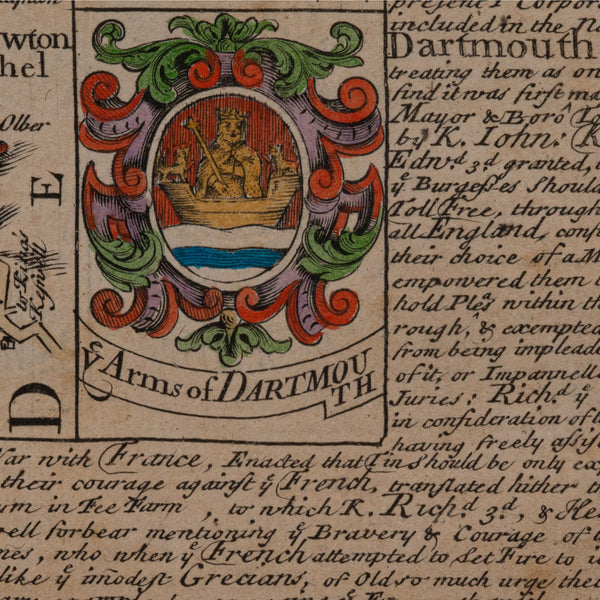 present Corpor
included in the Na
Dartmouth
treating them as on
find it was first ma
Mayor & Boro. To
by K. Iohn: K
Edwd. 3d. granted,
ye Burgesses Should
Toll Free, through
all England, conf
their choice of a M
empowered them t
hold Ples within th
rough, & exempted
from being impleade
of it, or Impannell
Juries: Richd. ye
in consideration of
having freely assis
ewton
hel
Olber
D E
ye Arms of DARTMOU
TH
War with France, Enacted that Tin should be only ex
their courage against ye French, translated hither th
rm in Fee Farm, to which K. Richd. 3d., & He
ell forbear mentioning ye Bravery & Courage of
nes, who when ye French attempted to Set Fire to i
like ye imodest Grecians, of Old so much urge the